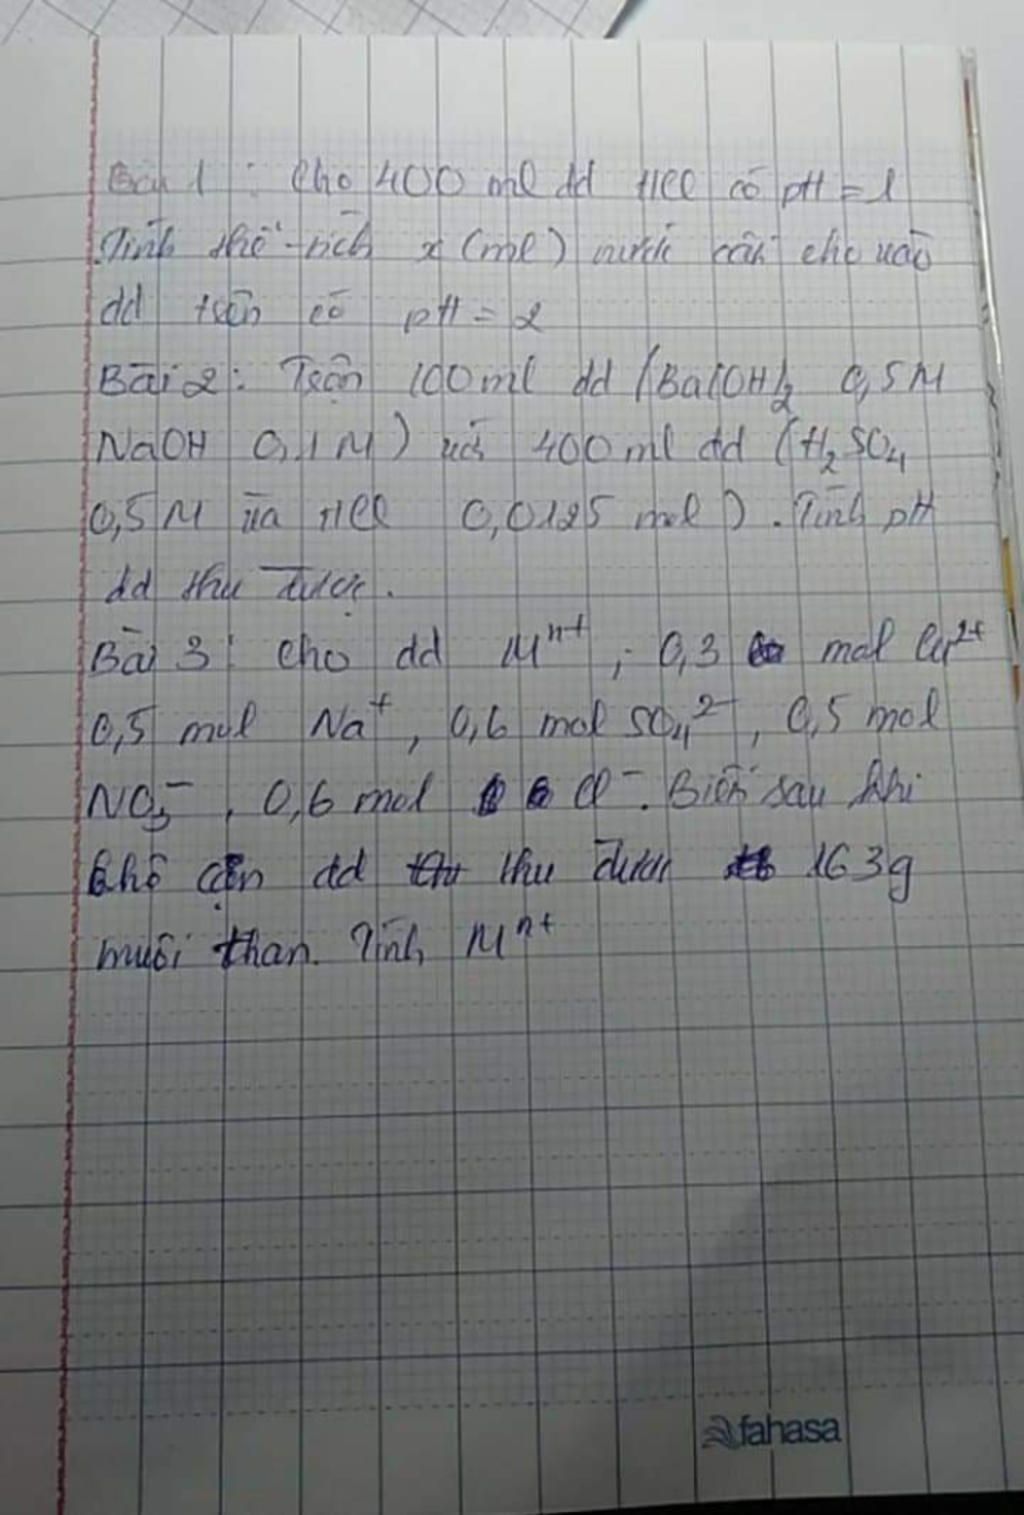 Bài 1 : Cho 400 ml dd HCl có pH = 1
Tính thể tích x (ml) nước cần cho vào
dd trên có pH = 2
Bài 2 : Trộn 100 ml dd (Ba(OH)₂ 0,5M
NaOH 0,1 M) với 400 ml dd (H₂SO₄
0,5M và HCl 0,0125 mol). Tính pH
dd thu được.
Bài 3 : Cho dd Mⁿ⁺ ; 0,3 mol Cu²⁺
0,5 mol Na⁺, 0,6 mol SO₄²⁻, 0,5 mol
NO₃⁻, 0,6 mol Cl⁻. Biết sau khi
khô cạn dd thu được 163g
muối than. Tính Mⁿ⁺
fahasa